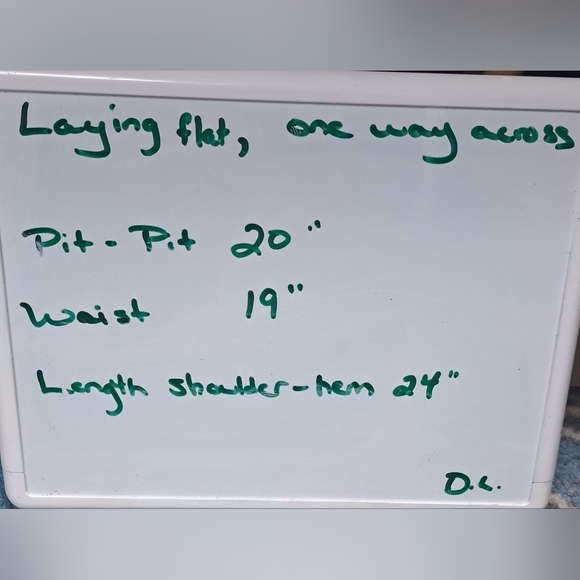 Laying flat, one way across
Pit - Pit 20"
Waist 19"
Length shoulder-hem 24"
D.L.